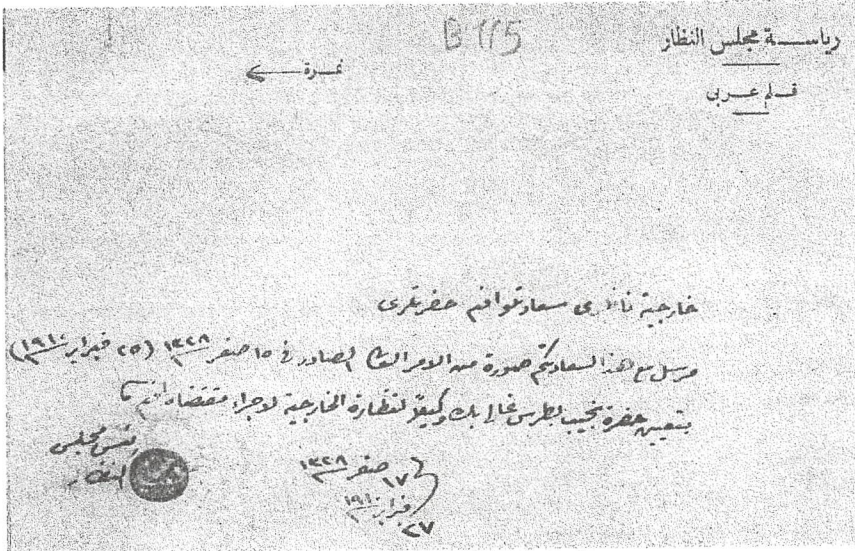 B 115
رياسة مجلس النظار
نمرة
قلم عربى
خارجية ناظرى سعادتلو افندم حضرتلرى
مرسل مع هذا لسعادتكم صورة من الامر العالى الصادر فى ١٥ صفر ١٣٢٨ (٢٥ فبراير ١٩١٠)
بتعيين حضرة نجيب بطرس غالى بك وكيلا لنظارة الخارجية لاجراء مقتضاه افندم
رئيس مجلس
النظار
١٧ صفر ١٣٢٨
٢٧ فبراير ١٩١٠